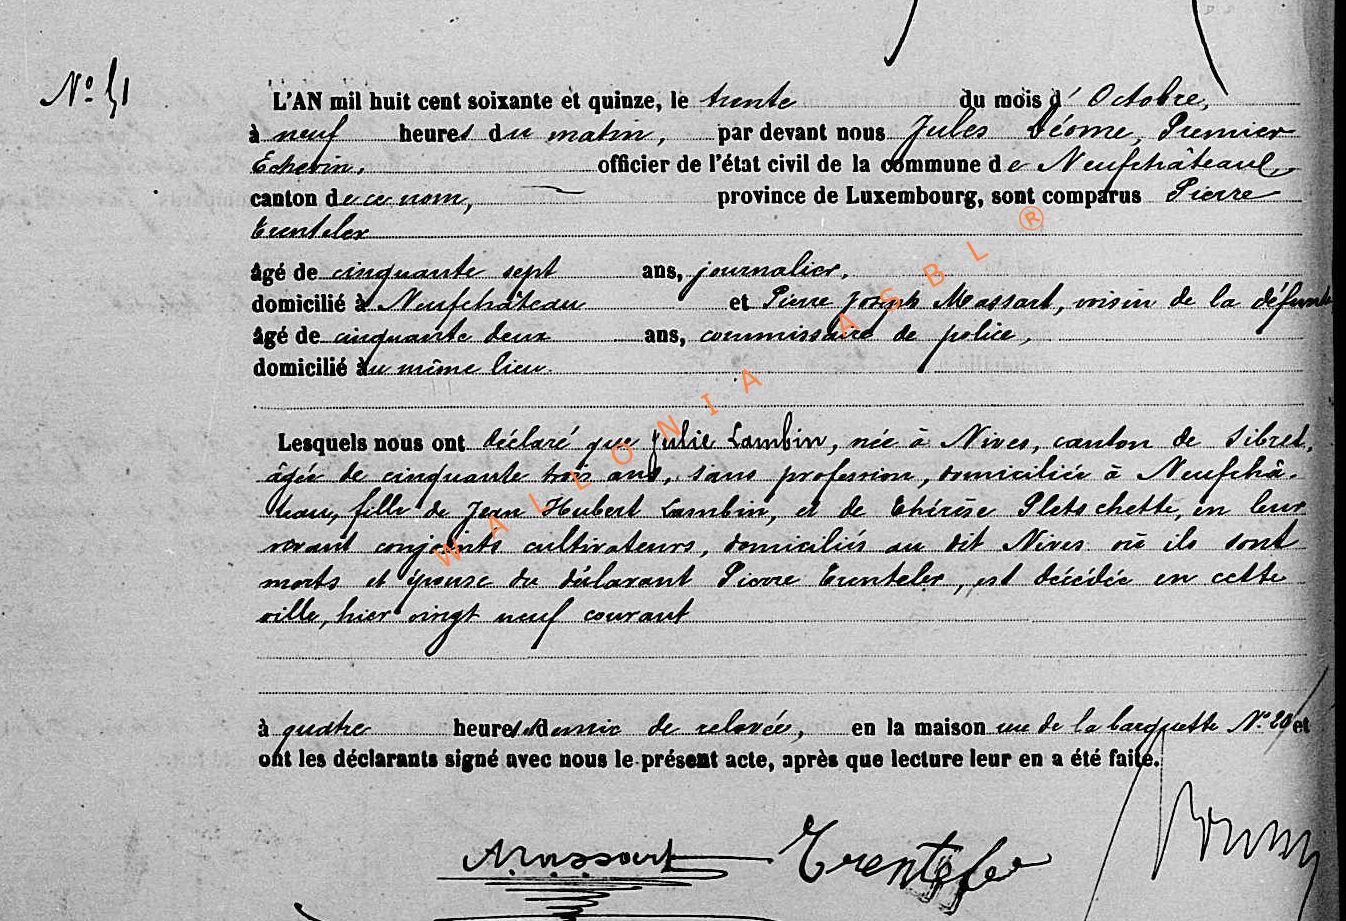 N° 51
L'AN mil huit cent soixante et quinze, le trente du mois d'Octobre,
à neuf heures du matin, par devant nous Jules Déome, Premier
Echevin, officier de l'état civil de la commune de Neufchâteau,
canton de ce nom, province de Luxembourg, sont comparus Pierre
Trenteler
âgé de cinquante sept ans, journalier,
domicilié à Neufchâteau et Pierre Joseph Massart, voisin de la défunte
âgé de cinquante deux ans, commissaire de police,
domicilié au même lieu.
Lesquels nous ont déclaré que Julie Lambin, née à Nives, canton de Sibret,
âgée de cinquante trois ans, sans profession, domiciliée à Neufchâ-
teau, fille de Jean Hubert Lambin, et de Thérèse Pletschette, en leur
vivant conjoints cultivateurs, domiciliés au dit Nives où ils sont
morts et épouse du déclarant Pierre Trenteler, est décédée en cette
ville, hier vingt neuf courant
à quatre heures et demie de relevée, en la maison rue de la barquette N° 29 et
ont les déclarants signé avec nous le présent acte, après que lecture leur en a été faite.
WALLONIA ASBL ®
Massart Trenteler